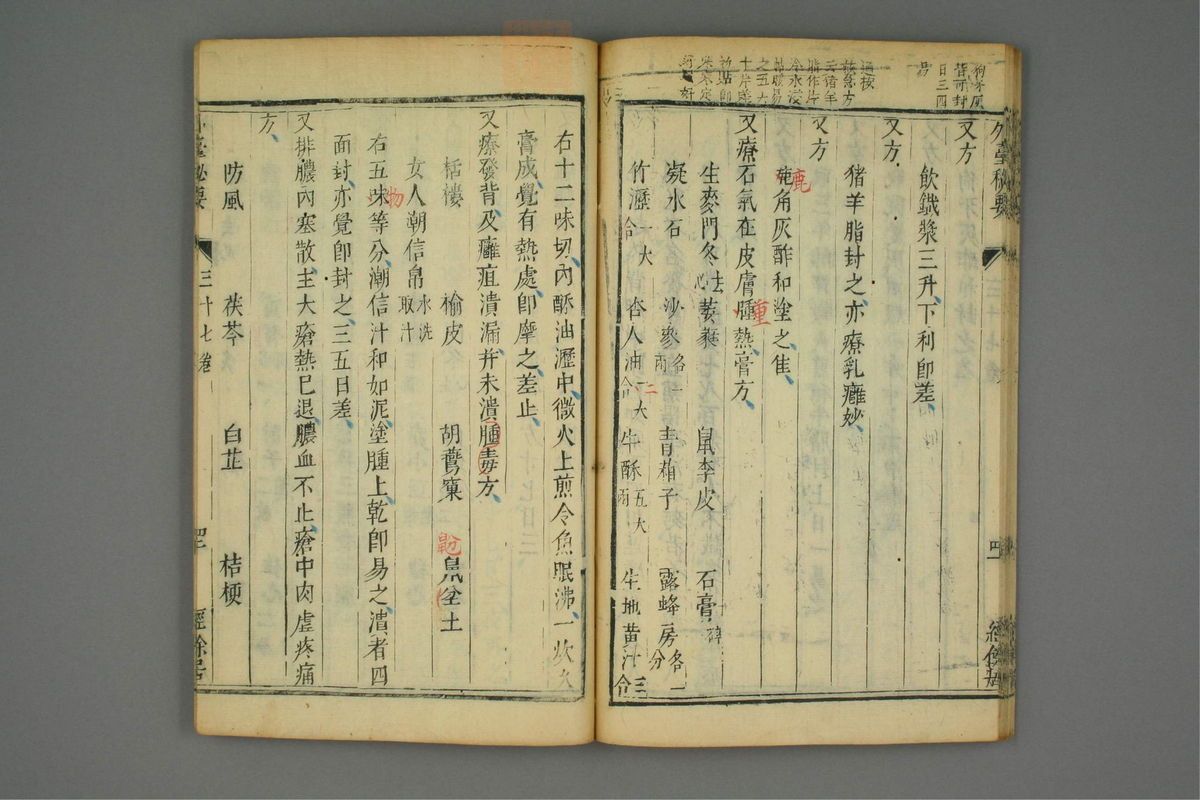 狗牙灰
醋和封
日三四
易
通按
救急方
云豬羊
脂作片
冷水浸
貼暖易
之五大
十片差
外臺秘要
四
經餘居
又方
飲鐵漿三升下利即差
又方
豬羊脂封之亦療乳癰妙
又方
鹿角灰酢和塗之隹
又療石氣在皮膚腫熱膏方
生麥門冬去心 萎蕤 鼠李皮 石膏碎
凝水石 沙參各一兩 青葙子 露蜂房各一分
竹瀝一大合 杏人油一大合 牛酥五大兩 生地黃汁三合
右十二味切內酥油瀝中微火上煎令魚眼沸一炊久
膏成覺有熱處即摩之差止
又療發背及癰疽潰漏并未潰腫毒方
栝樓 榆皮 胡鷰窠 鼠坌土
女人朝信帛水洗取汁
右五味等分潮信汁和如泥塗腫上乾即易之潰者四
面封亦覺即封之三五日差
又排膿內塞散主大瘡熱已退膿血不止瘡中肉虛疼痛
方
防風 茯苓 白芷 桔梗
外臺秘要
三十七卷
四
經餘居
鹿
重
仁
物